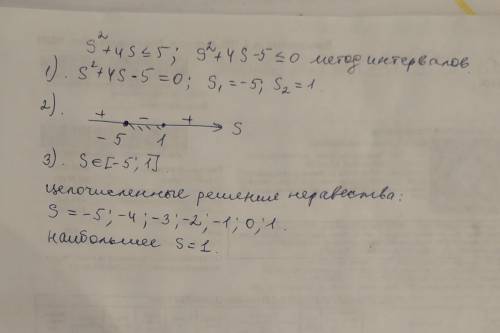 S²+4S≤5; S²+4S-5≤0 метод интервалов.
1). S²+4S-5=0; S₁=-5; S₂=1.
2). + - + S
-5 1
3). S∈[-5;1].
целочисленные решение неравества:
S=-5;-4;-3;-2;-1;0;1.
наибольшее S=1.